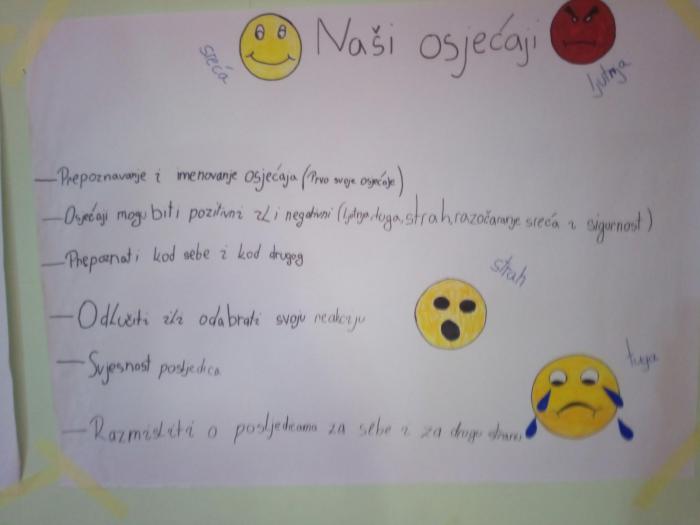 sreća
Naši osjećaji
ljutnja
– Prepoznavanje i imenovanje osjećaja (Prvo svoje osjećaje)
– Osjećaji mogu biti pozitivni ili negativni (ljutnja, tuga, strah, razočaranje sreća i sigurnost)
– Prepoznati kod sebe i kod drugog
strah
– Odlučiti ili odabrati svoju reakciju
– Svjesnost posljedica
tuga
– Razmisliti o posljedicama za sebe i za drugu stranu